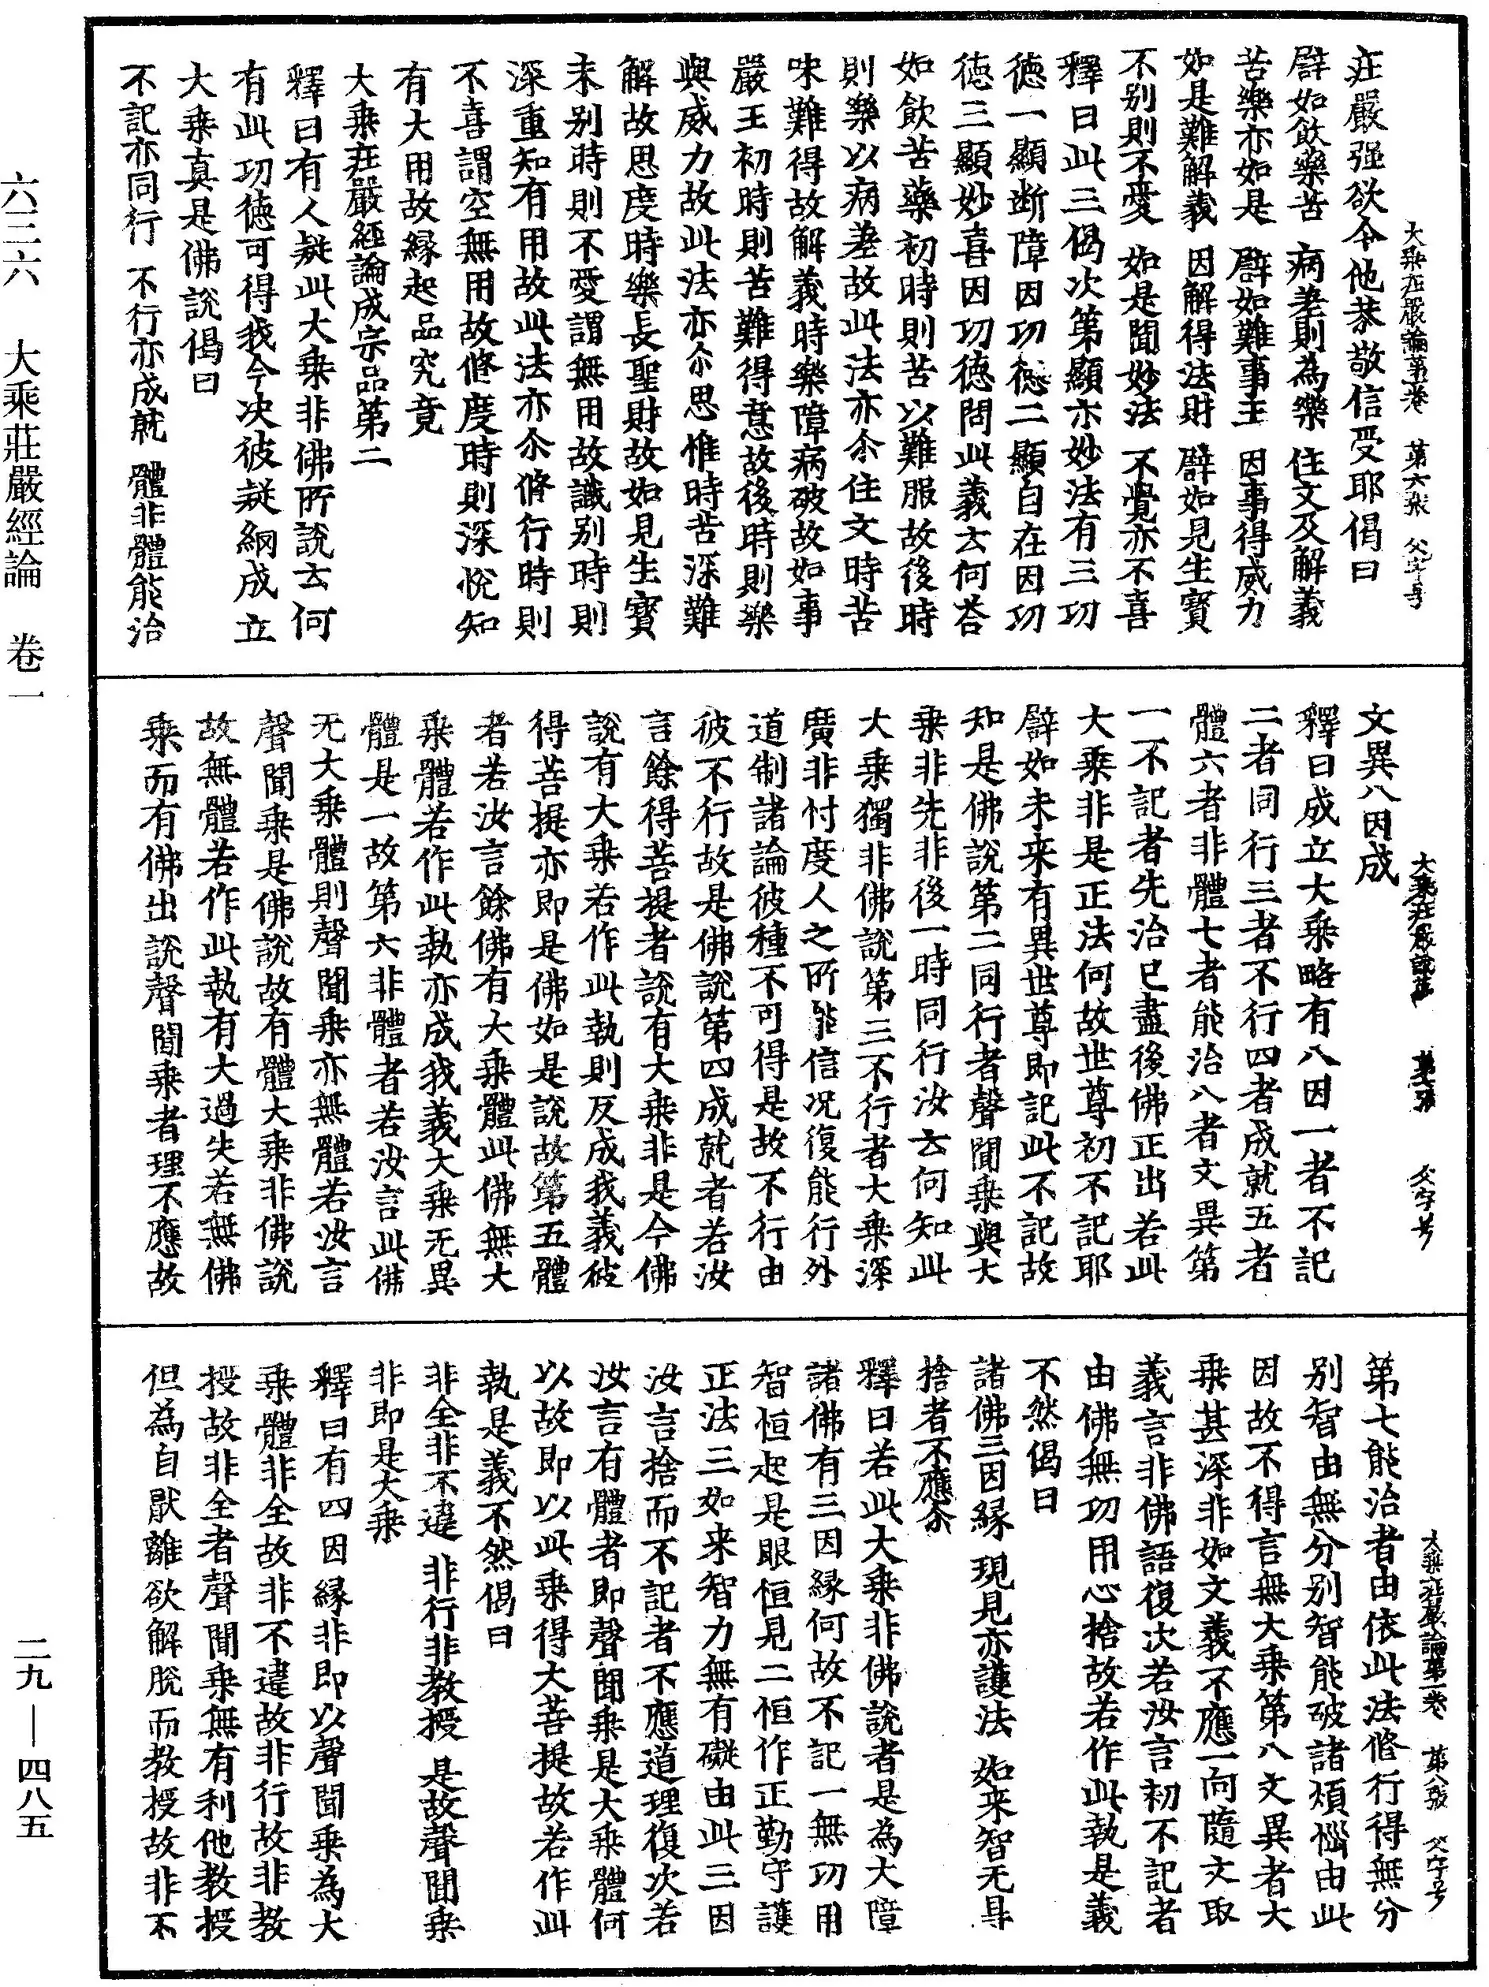 大乘莊嚴論第一卷 第六張 父字号
莊嚴强欲令他恭敬信受耶偈曰
譬如飲藥苦 病差則為樂 住文及解義
苦樂亦如是 譬如難事王 因事得威力
如是難解義 因解得法財 譬如見生寳
不别則不愛 如是聞妙法 不覺亦不喜
釋曰此三偈次第顯示妙法有三功
德一顯断障因功德二顯自在因功
德三顯妙喜因功德問此義云何荅
如飲苦藥初時則苦以難服故後時
則樂以病差故此法亦尒住文時苦
味難得故解義時樂障病破故如事
嚴王初時則苦難得意故後時則樂
與威力故此法亦尒思惟時苦深難
解故思度時樂長聖財故如見生寳
未别時則不愛謂無用故識别時則
深重知有用故此法亦尒修行時則
不喜謂空無用故修度時則深悅知
有大用故緣起品究竟
大乘莊嚴經論成宗品第二
釋曰有人疑此大乘非佛所說云何
有此功德可得我今决彼疑網成立
大乘真是佛說偈曰
不記亦同行 不行亦成就 體非體能治
大乘莊嚴論第一卷 第七張 父字号
文異八因成
釋曰成立大乘略有八因一者不記
二者同行三者不行四者成就五者
體六者非體七者能治八者文異第
一不記者先治已盡後佛正出若此
大乘非是正法何故世尊初不記耶
譬如未来有異世尊即記此不記故
知是佛說第二同行者聲聞乘與大
乘非先非後一時同行汝云何知此
大乘獨非佛說第三不行者大乘深
廣非忖度人之所能信况復能行外
道制諸論彼種不可得是故不行由
彼不行故是佛說第四成就者若汝
言餘得菩提者說有大乘非是今佛
說有大乘若作此執則反成我義彼
得菩提亦即是佛如是說故第五體
者若汝言餘佛有大乘體此佛無大
乘體若作此執亦成我義大乘无異
體是一故第六非體者若汝言此佛
无大乘體則聲聞乘亦無體若汝言
聲聞乘是佛說故有體大乘非佛說
故無體若作此執有大過失若無佛
乘而有佛出說聲聞乘者理不應故
大乘莊嚴論第一卷 第八張 父字号
第七能治者由依此法修行得無分
别智由無分别智能破諸煩惱由此
因故不得言無大乘第八文異者大
乘甚深非如文義不應一向隨文取
義言非佛語復次若汝言初不記者
由佛無功用心捨故若作此執是義
不然偈曰
諸佛三因緣 現見亦護法 如来智无㝵
捨者不應尒
釋曰若此大乘非佛說者是為大障
諸佛有三因緣何故不記一無功用
智恒起是眼恒見二恒作正勤守護
正法三如来智力無有礙由此三因
汝言捨而不記者不應道理復次若
汝言有體者即聲聞乘是大乘體何
以故即以此乘得大菩提故若作此
執是義不然偈曰
非全非不違 非行非教授 是故聲聞乘
非即是大乘
釋曰有四因緣非即以聲聞乘為大
乘體非全故非不違故非行故非教
授故非全者聲聞乘無有利他教授
但為自厭離欲解脫而教授故非不
六三六 大乘莊嚴經論 卷一
二九—四八五